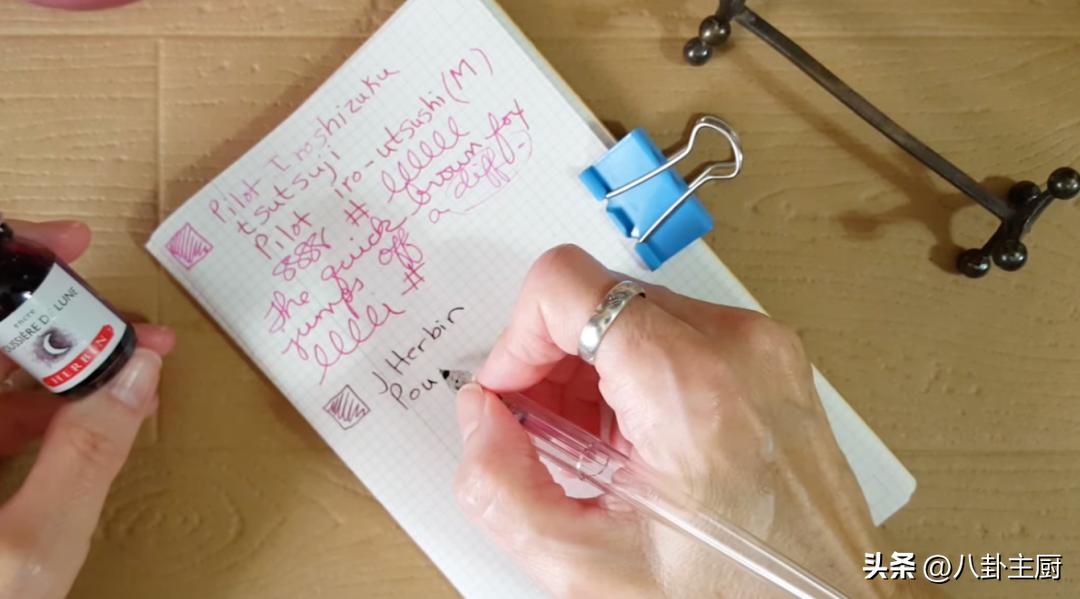 Pilot Iroshizuku
tsutsuji
Pilot iro-utsushi (M)
888 # lllll
The quick brown fox
jumps off a diff.
lllll #
J Herbin
Pou
encre
OUSSIÈRE DE LUNE
HERBIN
头条 @八卦主厨